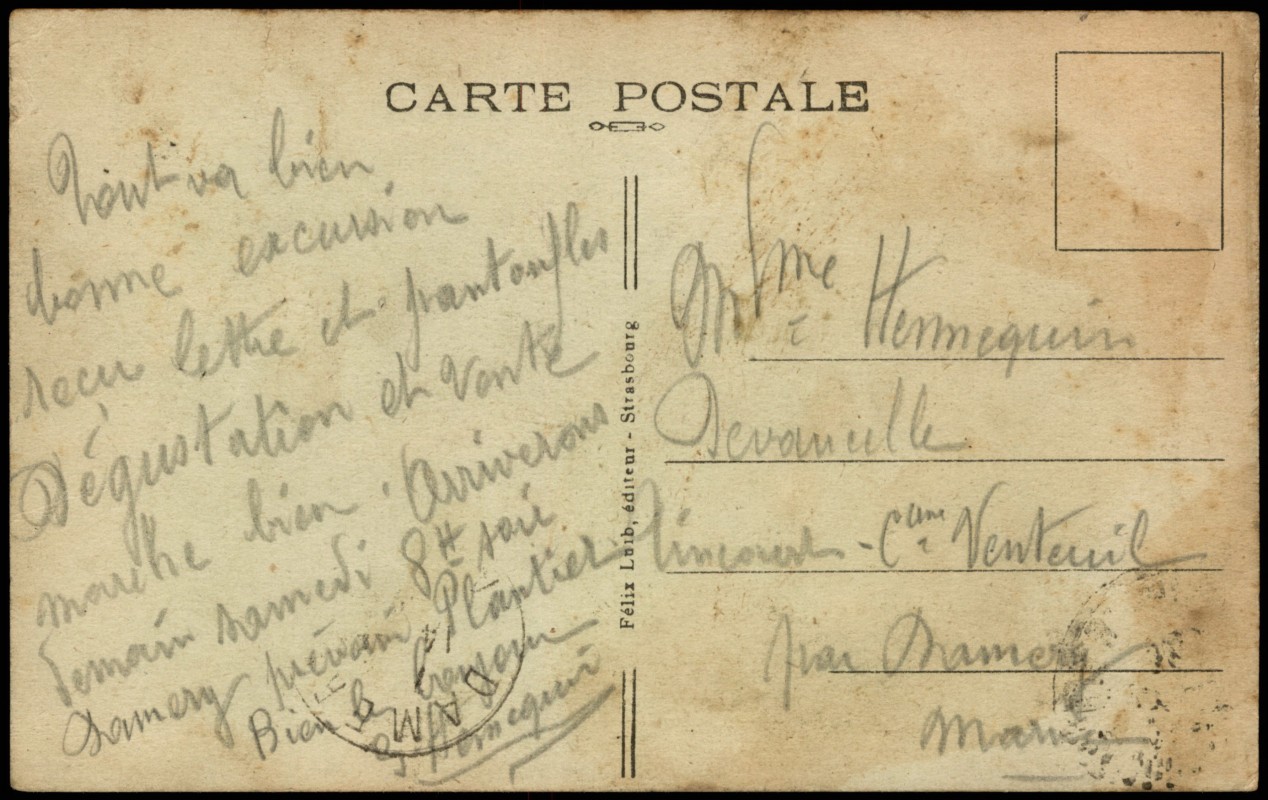 CARTE POSTALE
Tout va bien
bonne excursion
reçu lettre et pantoufles
Dégustation et vente
marche bien. Arriverons
demain samedi 8H soir
Damery prévenir Plantier
Bien le bonjour
Hennequin
DAM
Félix Luib, éditeur - Strasbourg
Mme Hennequin
Tincourt - Cne Venteuil
par Damery
Marne